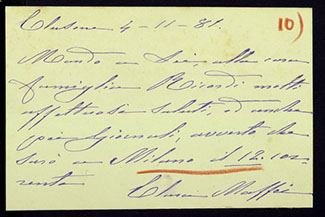 Clusone 4-11-81.
10)
Mando a Lei e alla cara
famiglia Ricordi molti
affettuosi saluti, ed anche
pei Giornali, avverto che
sarò a Milano il 12. cor-
rente
Clara Maffei